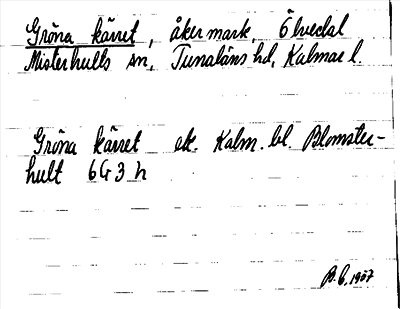 Gröna kärret, åkermark, Ölvedal
Misterhults sn, Tunaläns hd, Kalmar l.
Gröna kärret ek. Kalm. bl. Blomster-
hult 6G3h
1957